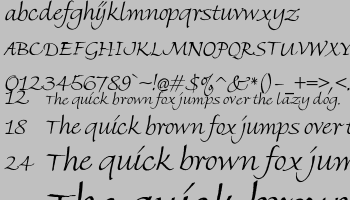 abcdefghijklmnopqrstuvwxyz
ABCDEFGHIJKLMNOPQRSTUVWXY
0123456789`~!@#$%^&*()-_+=>,<.
12 The quick brown fox jumps over the lazy dog.
18 The quick brown fox jumps over t
24 The quick brown fox jum
The quick brown